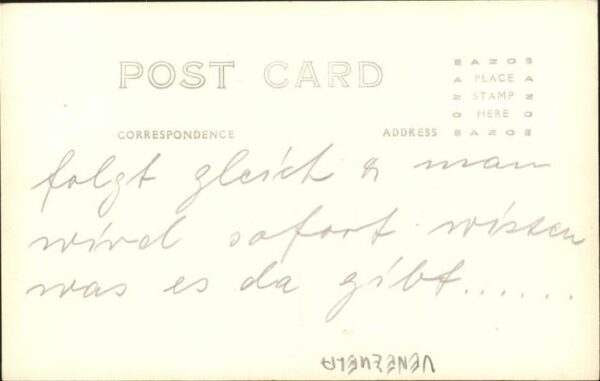 POST CARD
AZOS
PLACE
STAMP
HERE
AZOS
CORRESPONDENCE
ADDRESS
folgt gleich & man
wird sofort wissen
was es da gibt.......
VENEZUELA